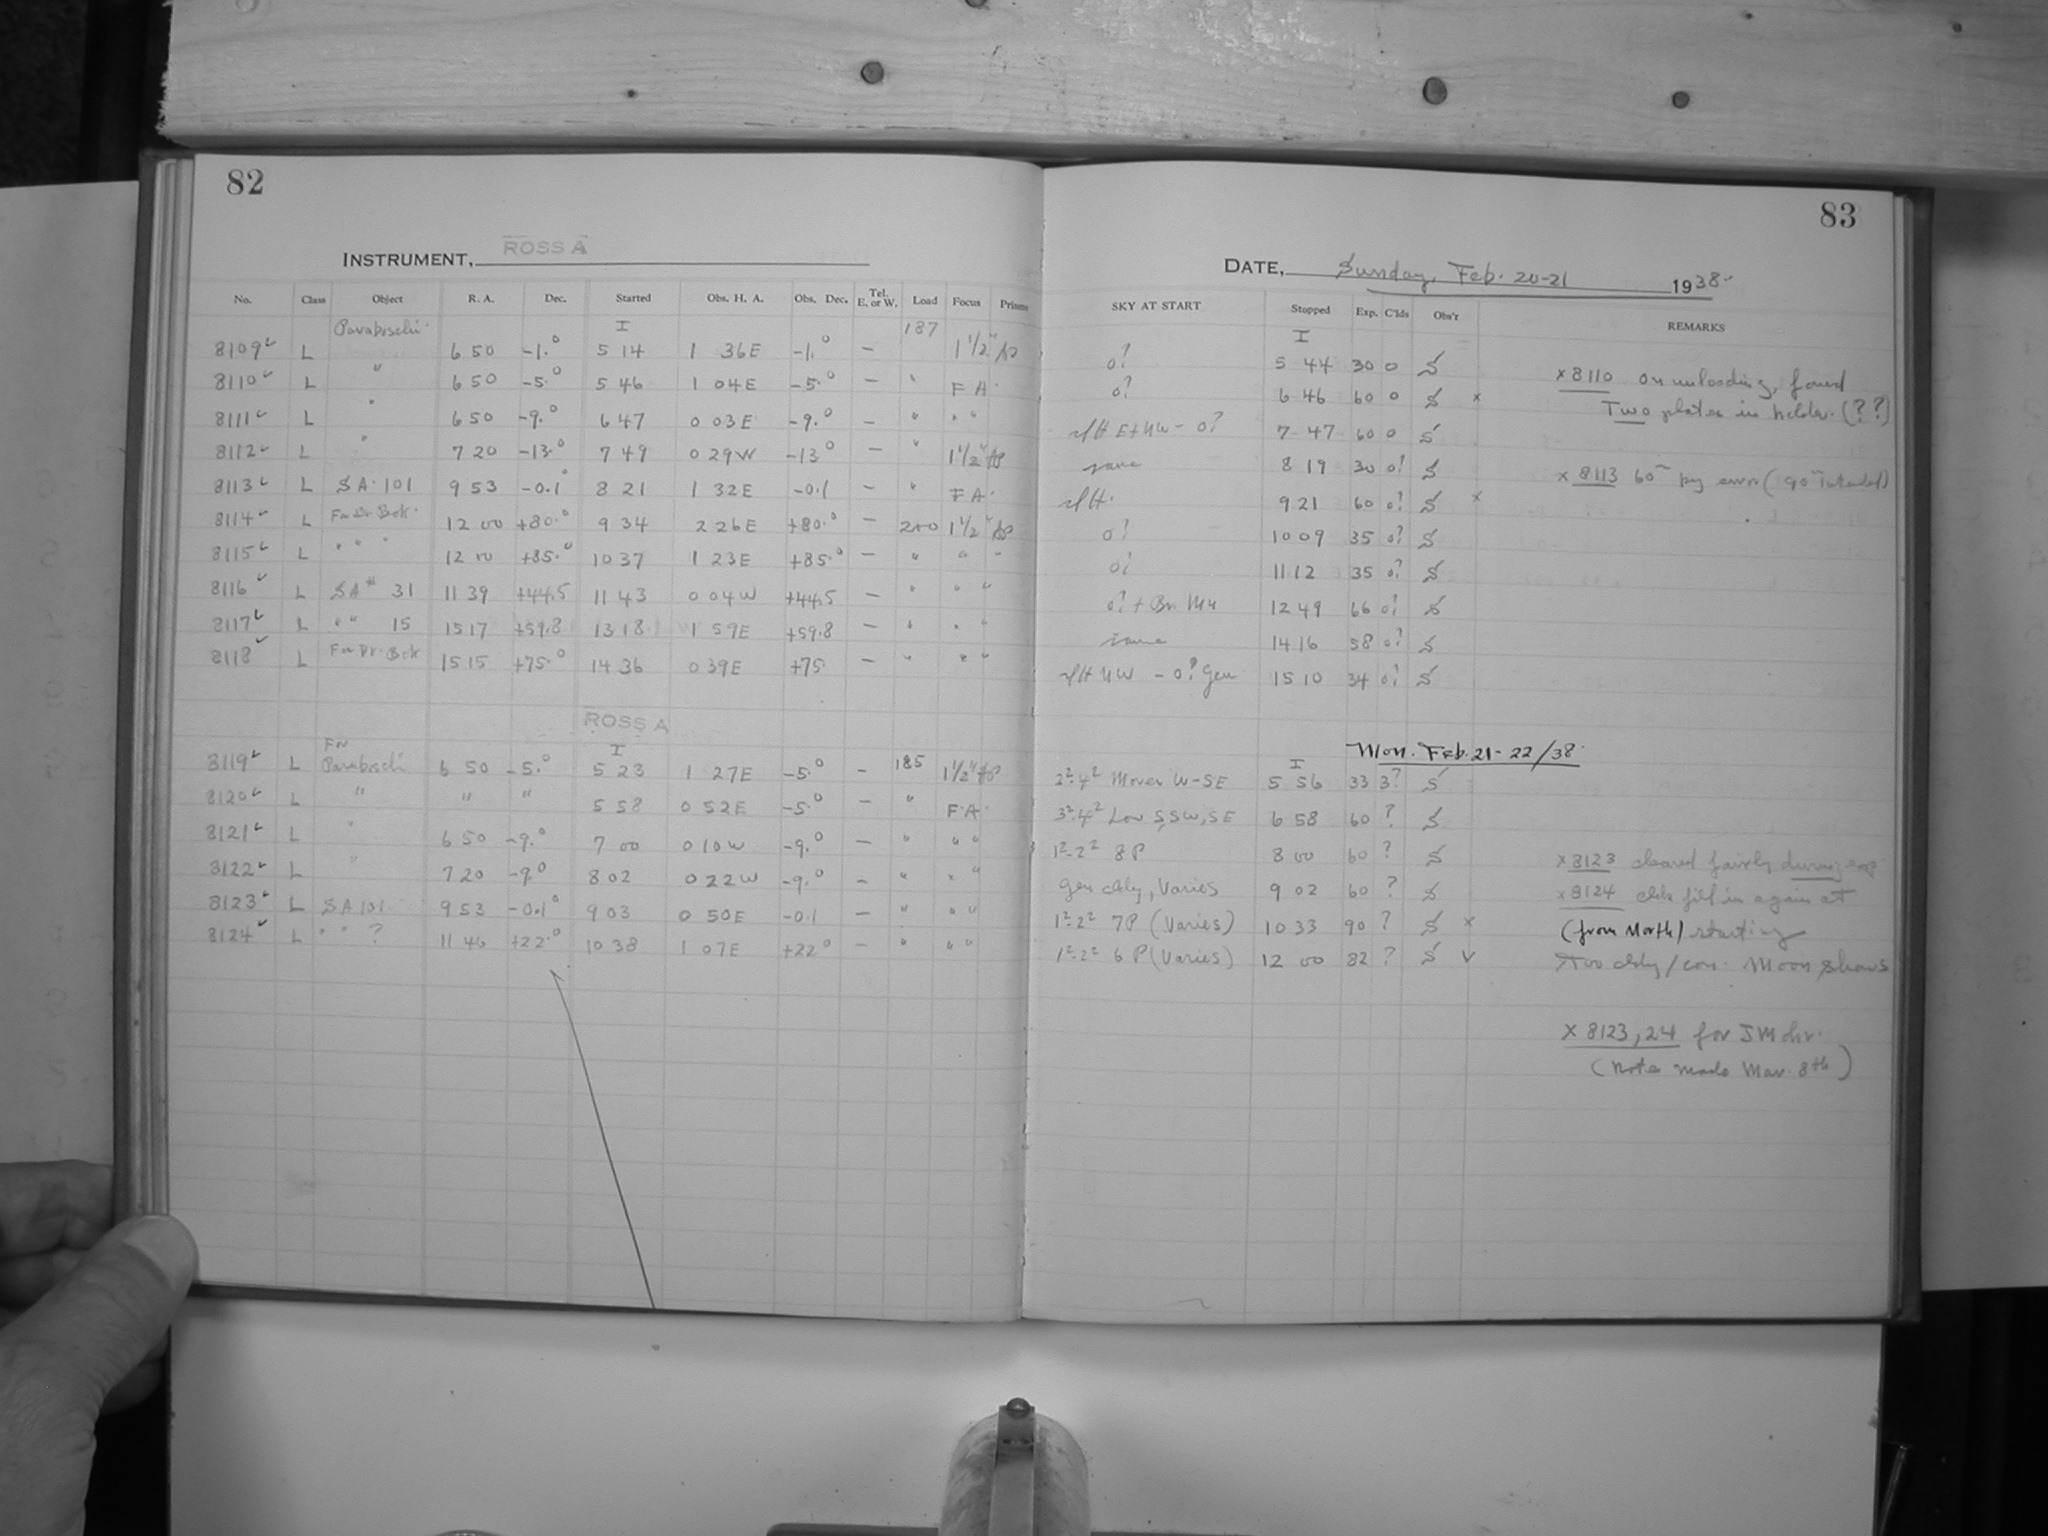 82
INSTRUMENT, ROSS A
No. Class Object R. A. Dec. Started Obs. H. A. Obs. Dec. Tel. E. or W. Load Focus Prisms
I 187
8109 L 6 50 -1.° 5 14 1 36E -1.° — 1 1/2"
8110 L " 6 50 -5.° 5 46 1 04E -5.° — " F A.
8111 L " 6 50 -9.° 6 47 0 03E -9.° — " " "
8112 L " 7 20 -13.° 7 49 0 29W -13° — " 1 1/2"
8113 L SA. 101 9 53 -0.1° 8 21 1 32E -0.1 — " F A.
8114 L For Dr. Bok. 12 00 +80.° 9 34 2 26E +80.° — 200 1 1/2"
8115 L " " " 12 00 +85.° 10 37 1 23E +85.° — " " "
8116 L SA# 31 11 39 +44.5 11 43 0 04W +44.5 — " " "
8117 L " " 15 15 17 +59.8 13 18 1 59E +59.8 — " " "
8118 L For Dr. Bok 15 15 +75.° 14 36 0 39E +75 — " " "
ROSS A
For I
8119 L 6 50 -5.° 5 23 1 27E -5.° — 185 1 1/2"
8120 L " " " 5 58 0 52E -5.° — " F.A.
8121 L " 6 50 -9.° 7 00 0 10W -9.° — " " "
8122 L " 7 20 -9.° 8 02 0 22W -9.° — " " "
8123 L SA101. 9 53 -0.1° 9 03 0 50E -0.1 — " " "
8124 L " " ? 11 46 +22.° 10 38 1 07E +22° — " " "
83
DATE, Sunday, Feb. 20-21 1938.
SKY AT START Stopped Exp. C'lds Obs'r REMARKS
I
0? 5 44 30 0 S
0? 6 46 60 0 S x
E+NW - 0? 7 47 60 0 S
same 8 19 30 0? S
9 21 60 0? S x
0? 10 09 35 0? S
0? 11 12 35 0? S
0? + Br. Mn 12 49 66 0? S
same 14 16 58 0? S
NW - 0? Gen 15 10 34 0? S
x 8110 on unloading, found
Two plates in holder. (??)
x 8113 60m by error (90m intended)
Mon. Feb. 21-22/38.
I
2²-4² Moves W-SE 5 56 33 3? S
3²-4² Low S, SW, SE 6 58 60 ? S
1²-2² 8P 8 00 60 ? S
Gen cldy, Varies 9 02 60 ? S
1²-2² 7P (Varies) 10 33 90 ? S x
1²-2² 6P (Varies) 12 00 82 ? S v
x 8123 cleared fairly during exp
x 8124 clds fill in again at
(from North) starting
Too cldy/con. Moon shows
x 8123, 24 for J Mohr.
(Notes made Mar. 8th)